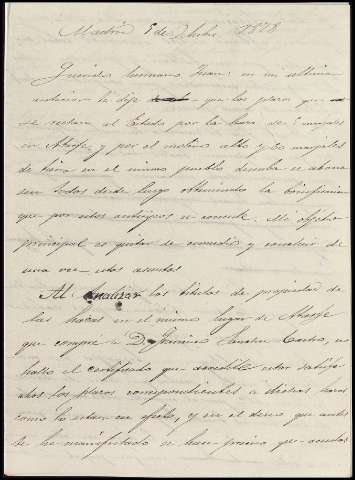 Madrid 5 de Octubre 1878
Querido hermano Juan: en mi ultima
anterior te dije que los plazos que
se restan al Estado por la haza de marjales
en Atarfe, y por el molino alto y 20 marjales
de tierra en el mismo pueblo deseaba se abonasen
todos desde luego obteniendo la bonificacion
que por estos anticipos se concede. Mi objeto
principal es quitar de enmedio y concluir de
una vez estos asuntos
Al analizar los titulos de propiedad de
las hazas en el mismo lugar de Atarfe
que compre a D. Castro, no
hallo el certificado que acredite estar satisfechos
los plazos correspondientes a dichas hazas
como lo estan en efecto, y en el deseo que antes
te he manifestado se hace preciso que